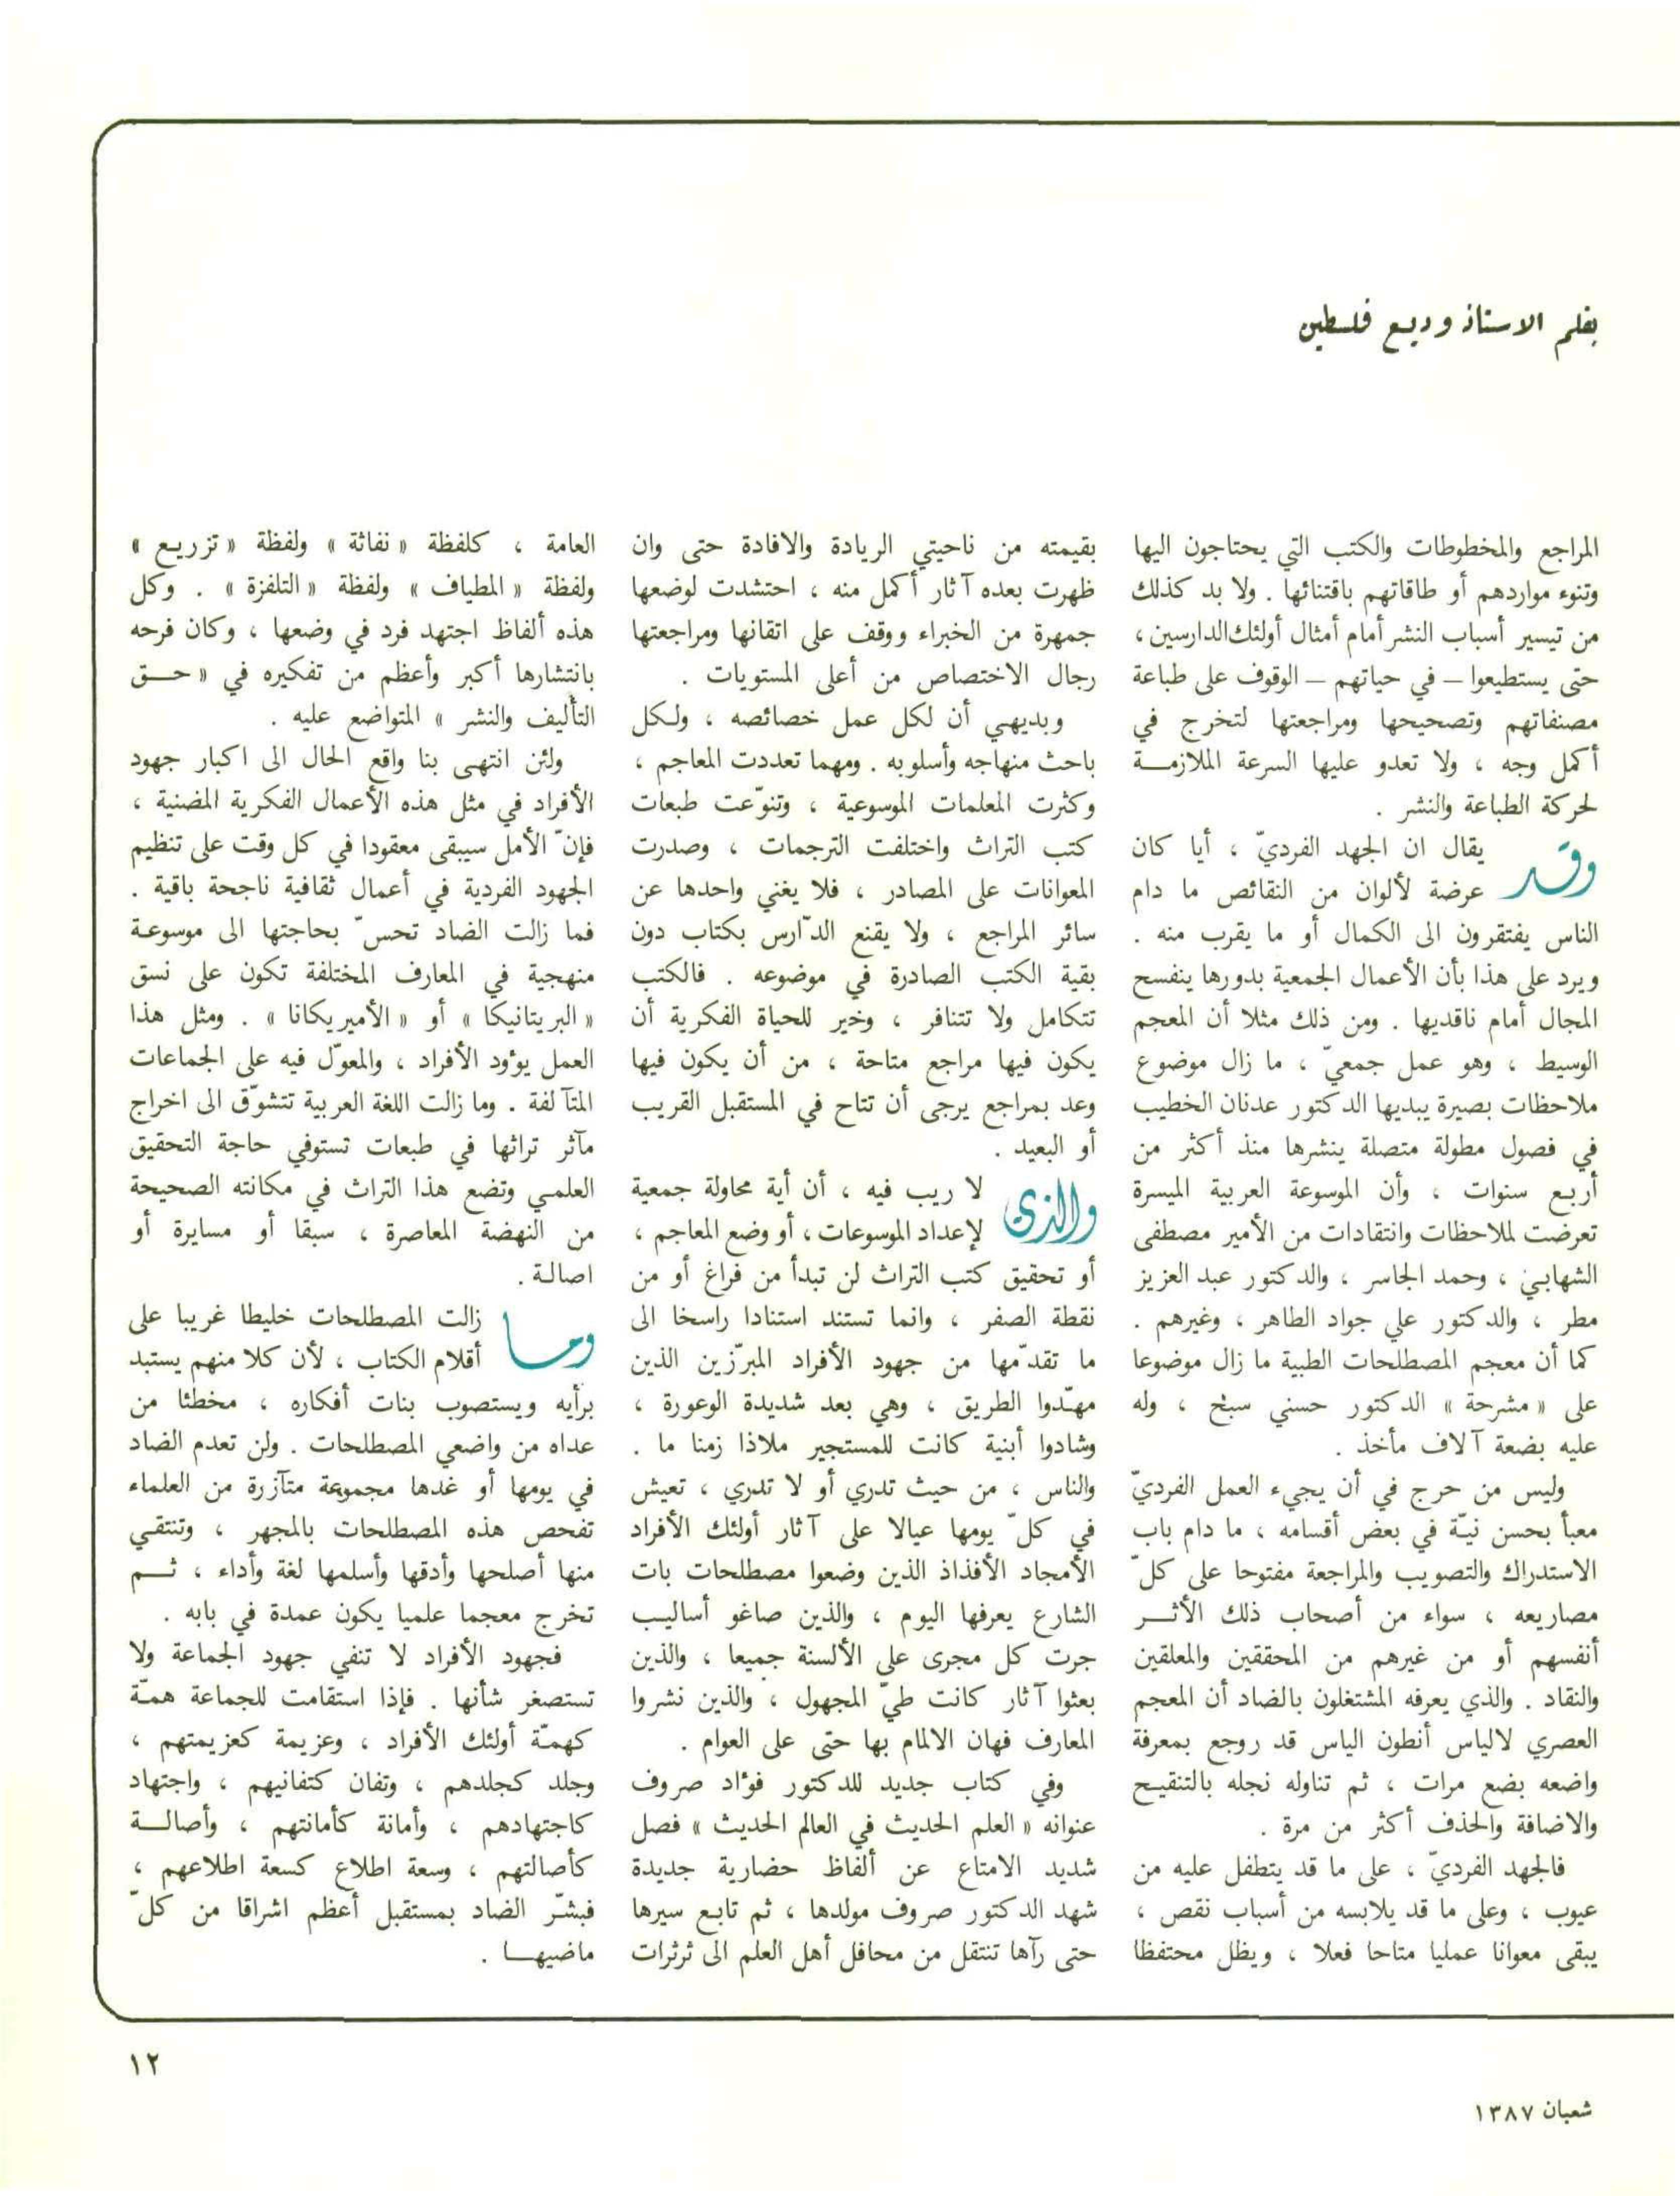 بقلم الاستاذ وديع فلسطين
المراجع والمخطوطات والكتب التي يحتاجون اليها
وتنوء مواردهم أو طاقاتهم باقتنائها . ولا بد كذلك
من تيسير أسباب النشر أمام أمثال أولئك الدارسين ،
حتى يستطيعوا – في حياتهم – الوقوف على طباعة
مصنفاتهم وتصحيحها ومراجعتها لتخرج في
أكمل وجه ، ولا تعدو عليها السرعة الملازمــة
لحركة الطباعة والنشر .
وقد يقال ان الجهد الفرديّ ، أيا كان
عرضة لألوان من النقائص ما دام
الناس يفتقرون الى الكمال أو ما يقرب منه .
ويرد على هذا بأن الأعمال الجمعية بدورها ينفسح
المجال أمام ناقديها . ومن ذلك مثلا أن المعجم
الوسيط ، وهو عمل جمعيّ ، ما زال موضوع
ملاحظات بصيرة يبديها الدكتور عدنان الخطيب
في فصول مطولة متصلة ينشرها منذ أكثر من
أربع سنوات ، وأن الموسوعة العربية الميسرة
تعرضت لملاحظات وانتقادات من الأمير مصطفى
الشهابي ، وحمد الجاسر ، والدكتور عبد العزيز
مطر ، والدكتور علي جواد الطاهر ، وغيرهم .
كما أن معجم المصطلحات الطبية ما زال موضوعا
على « مشرحة » الدكتور حسني سبح ، وله
عليه بضعة آلاف مأخذ .
وليس من حرج في أن يجيء العمل الفرديّ
معبأ بحسن نيّة في بعض أقسامه ، ما دام باب
الاستدراك والتصويب والمراجعة مفتوحا على كلّ
مصاريعه ، سواء من أصحاب ذلك الأثــر
أنفسهم أو من غيرهم من المحققين والمعلقين
والنقاد . والذي يعرفه المشتغلون بالضاد أن المعجم
العصري لالياس أنطون الياس قد روجع بمعرفة
واضعه بضع مرات ، ثم تناوله نجله بالتنقيح
والاضافة والحذف أكثر من مرة .
فالجهد الفرديّ ، على ما قد يتطفل عليه من
عيوب ، وعلى ما قد يلابسه من أسباب نقص ،
يبقى معوانا عمليا متاحا فعلا ، ويظل محتفظا
بقيمته من ناحيتي الريادة والافادة حتى وان
ظهرت بعده آثار أكمل منه ، احتشدت لوضعها
جمهرة من الخبراء ووقف على اتقانها ومراجعتها
رجال الاختصاص من أعلى المستويات .
وبديهي أن لكل عمل خصائصه ، ولكل
باحث منهاجه وأسلوبه . ومهما تعددت المعاجم ،
وكثرت المعلمات الموسوعية ، وتنوّعت طبعات
كتب التراث واختلفت الترجمات ، وصدرت
المعوانات على المصادر ، فلا يغني واحدها عن
سائر المراجع ، ولا يقنع الدّارس بكتاب دون
بقية الكتب الصادرة في موضوعه . فالكتب
تتكامل ولا تتنافر ، وخير للحياة الفكرية أن
يكون فيها مراجع متاحة ، من أن يكون فيها
وعد بمراجع يرجى أن تتاح في المستقبل القريب
أو البعيد .
والذي لا ريب فيه ، أن أية محاولة جمعية
لإعداد الموسوعات ، أو وضع المعاجم ،
أو تحقيق كتب التراث لن تبدأ من فراغ أو من
نقطة الصفر ، وانما تستند استنادا راسخا الى
ما تقدّمها من جهود الأفراد المبرّزين الذين
مهّدوا الطريق ، وهي بعد شديدة الوعورة ،
وشادوا أبنية كانت للمستجير ملاذا زمنا ما .
والناس ، من حيث تدري أو لا تدري ، تعيش
في كلّ يومها عيالا على آثار أولئك الأفراد
الأمجاد الأفذاذ الذين وضعوا مصطلحات بات
الشارع يعرفها اليوم ، والذين صاغو أساليب
جرت كل مجرى على الألسنة جميعا ، والذين
بعثوا آثار كانت طيّ المجهول ، والذين نشروا
المعارف فهان الالمام بها حتى على العوام .
وفي كتاب جديد للدكتور فؤاد صروف
عنوانه « العلم الحديث في العالم الحديث » فصل
شديد الامتاع عن ألفاظ حضارية جديدة
شهد الدكتور صروف مولدها ، ثم تابع سيرها
حتى رآها تنتقل من محافل أهل العلم الى ثرثرات
العامة ، كلفظة « نفاثة » ولفظة « تزريع »
ولفظة « المطياف » ولفظة « التلفزة » . وكل
هذه ألفاظ اجتهد فرد في وضعها ، وكان فرحه
بانتشارها أكبر وأعظم من تفكيره في « حــق
التأليف والنشر » المتواضع عليه .
ولئن انتهى بنا واقع الحال الى اكبار جهود
الأفراد في مثل هذه الأعمال الفكرية المضنية ،
فإنّ الأمل سيبقى معقودا في كل وقت على تنظيم
الجهود الفردية في أعمال ثقافية ناجحة باقية .
فما زالت الضاد تحسّ بحاجتها الى موسوعة
منهجية في المعارف المختلفة تكون على نسق
« البريتانيكا » أو « الأميريكانا » . ومثل هذا
العمل يوؤد الأفراد ، والمعوّل فيه على الجماعات
المتآلفة . وما زالت اللغة العربية تتشوّق الى اخراج
مآثر تراثها في طبعات تستوفي حاجة التحقيق
العلمي وتضع هذا التراث في مكانته الصحيحة
من النهضة المعاصرة ، سبقا أو مسايرة أو
اصالة .
وما زالت المصطلحات خليطا غريبا على
أقلام الكتاب ، لأن كلا منهم يستبد
برأيه ويستصوب بنات أفكاره ، مخطئا من
عداه من واضعي المصطلحات . ولن تعدم الضاد
في يومها أو غدها مجموعة متآزرة من العلماء
تفحص هذه المصطلحات بالمجهر ، وتنتقي
منها أصلحها وأدقها وأسلمها لغة وأداء ، ثــم
تخرج معجما علميا يكون عمدة في بابه .
فجهود الأفراد لا تنفي جهود الجماعة ولا
تستصغر شأنها . فإذا استقامت للجماعة همّة
كهمّة أولئك الأفراد ، وعزيمة كعزيمتهم ،
وجلد كجلدهم ، وتفان كتفانيهم ، واجتهاد
كاجتهادهم ، وأمانة كأمانتهم ، وأصالــة
كأصالتهم ، وسعة اطلاع كسعة اطلاعهم ،
فبشّر الضاد بمستقبل أعظم اشراقا من كلّ
ماضيهــا .
١٢
شعبان ١٣٨٧